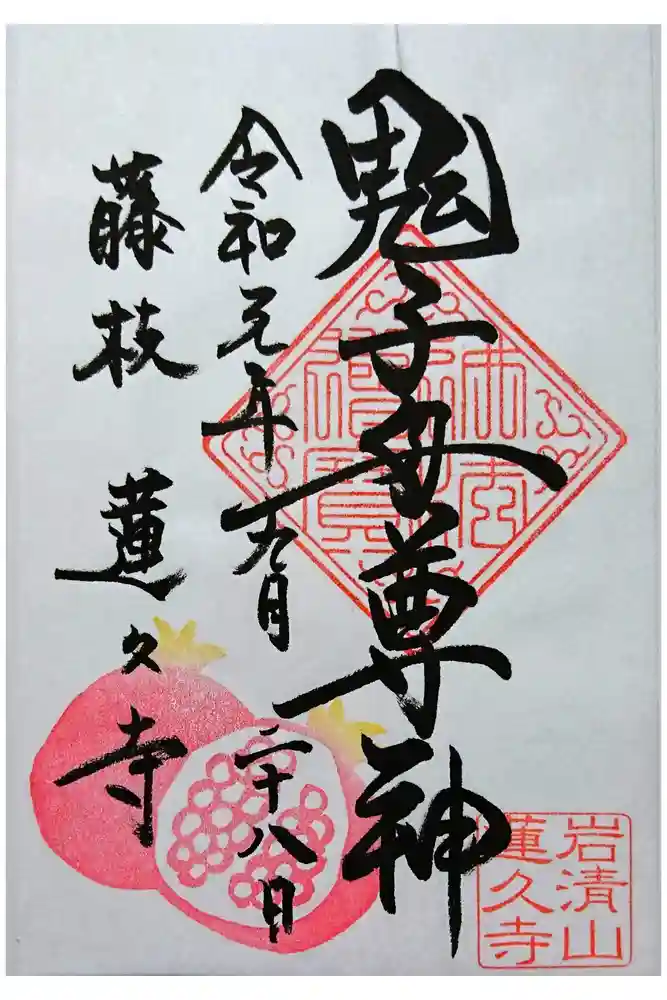 鬼子母尊神
令和元年九月二十八日
藤枝 蓮久寺
岩清山
蓮久寺